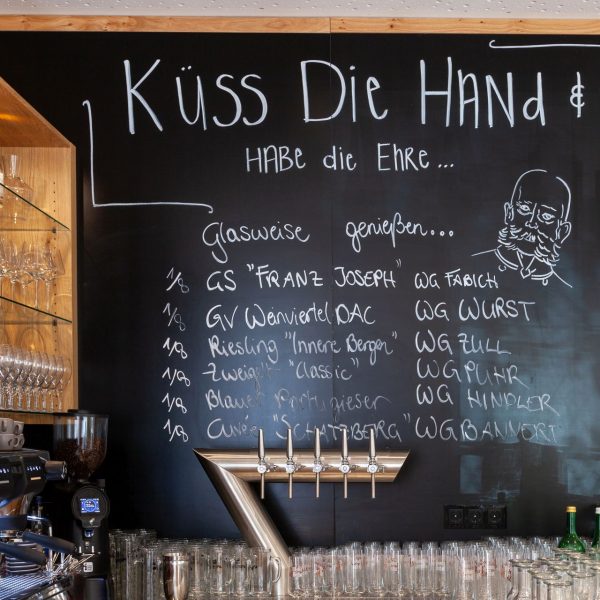 KÜSS DIE HANd &
HABE die EHRE...
Glasweise genießen...
1/8 GS "FRANZ JOSEPH" WG FABICH
1/8 GV Weinviertel DAC WG WURST
1/8 Riesling "Innere Bergen" WG ZULL
1/8 Zweigelt "Classic" WG PUHR
1/8 Blauer Portugieser WG HINDLER
1/8 Cuvée "SCHATZBERG" WG BANNERT